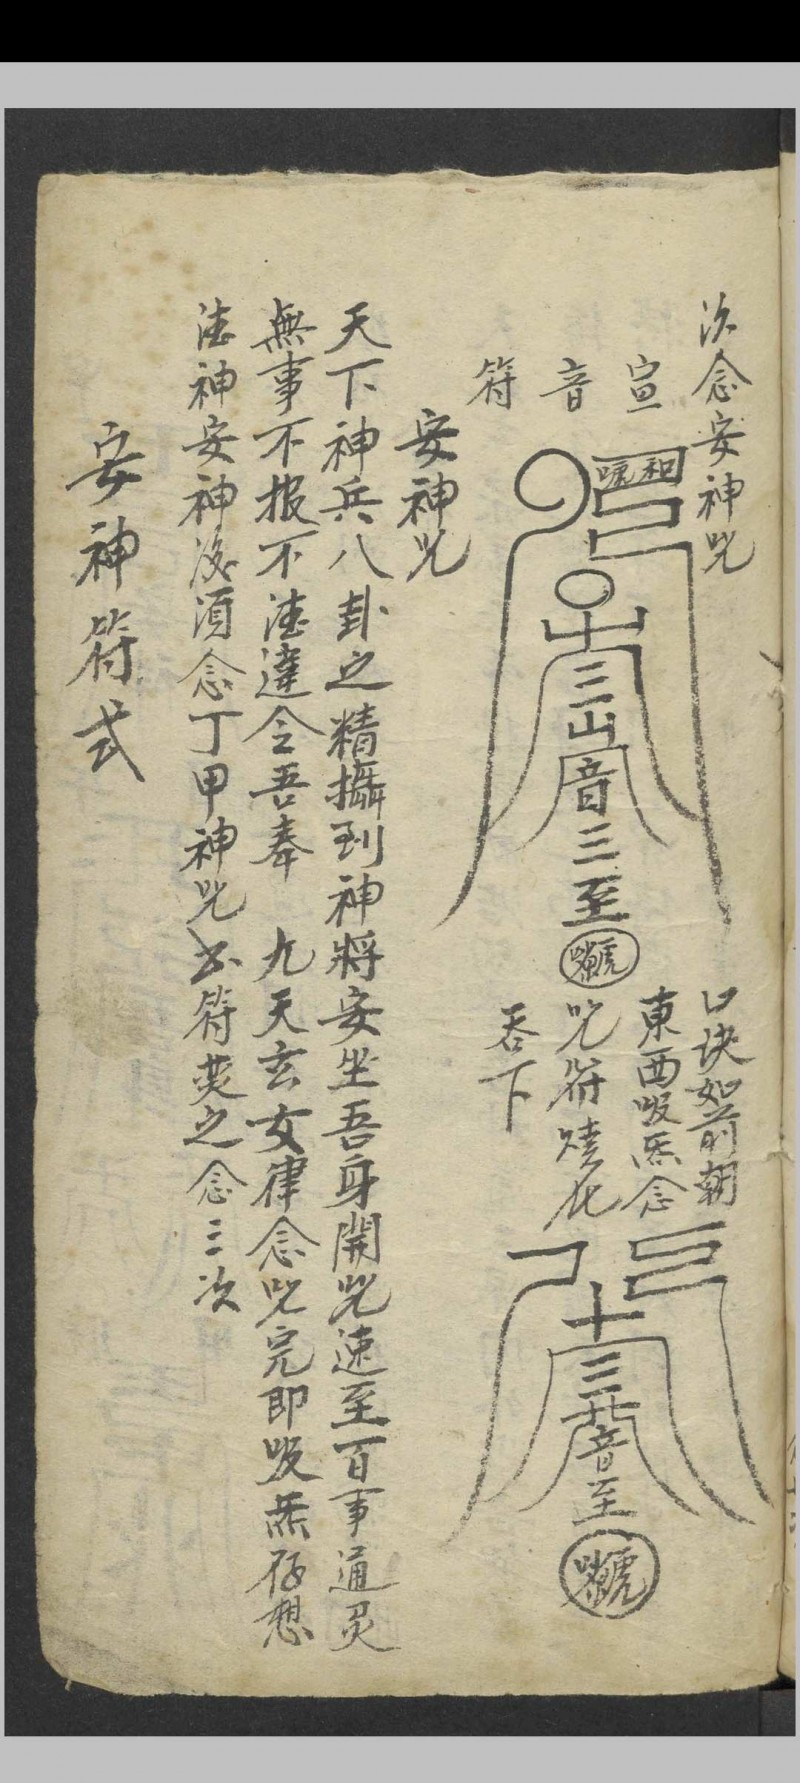 次念安神咒
宣音符
口诀如前朝
東西吸炁念
咒符燒化
吞下
三山音三至
十三音至
安神咒
天下神兵八卦之精攝到神將安坐吾身開咒速至百事通灵
無事不报不违令吾奉 九天玄女律念咒完即吸炁存想
神安神後須念丁甲神咒 符焚之念三次
安神符式